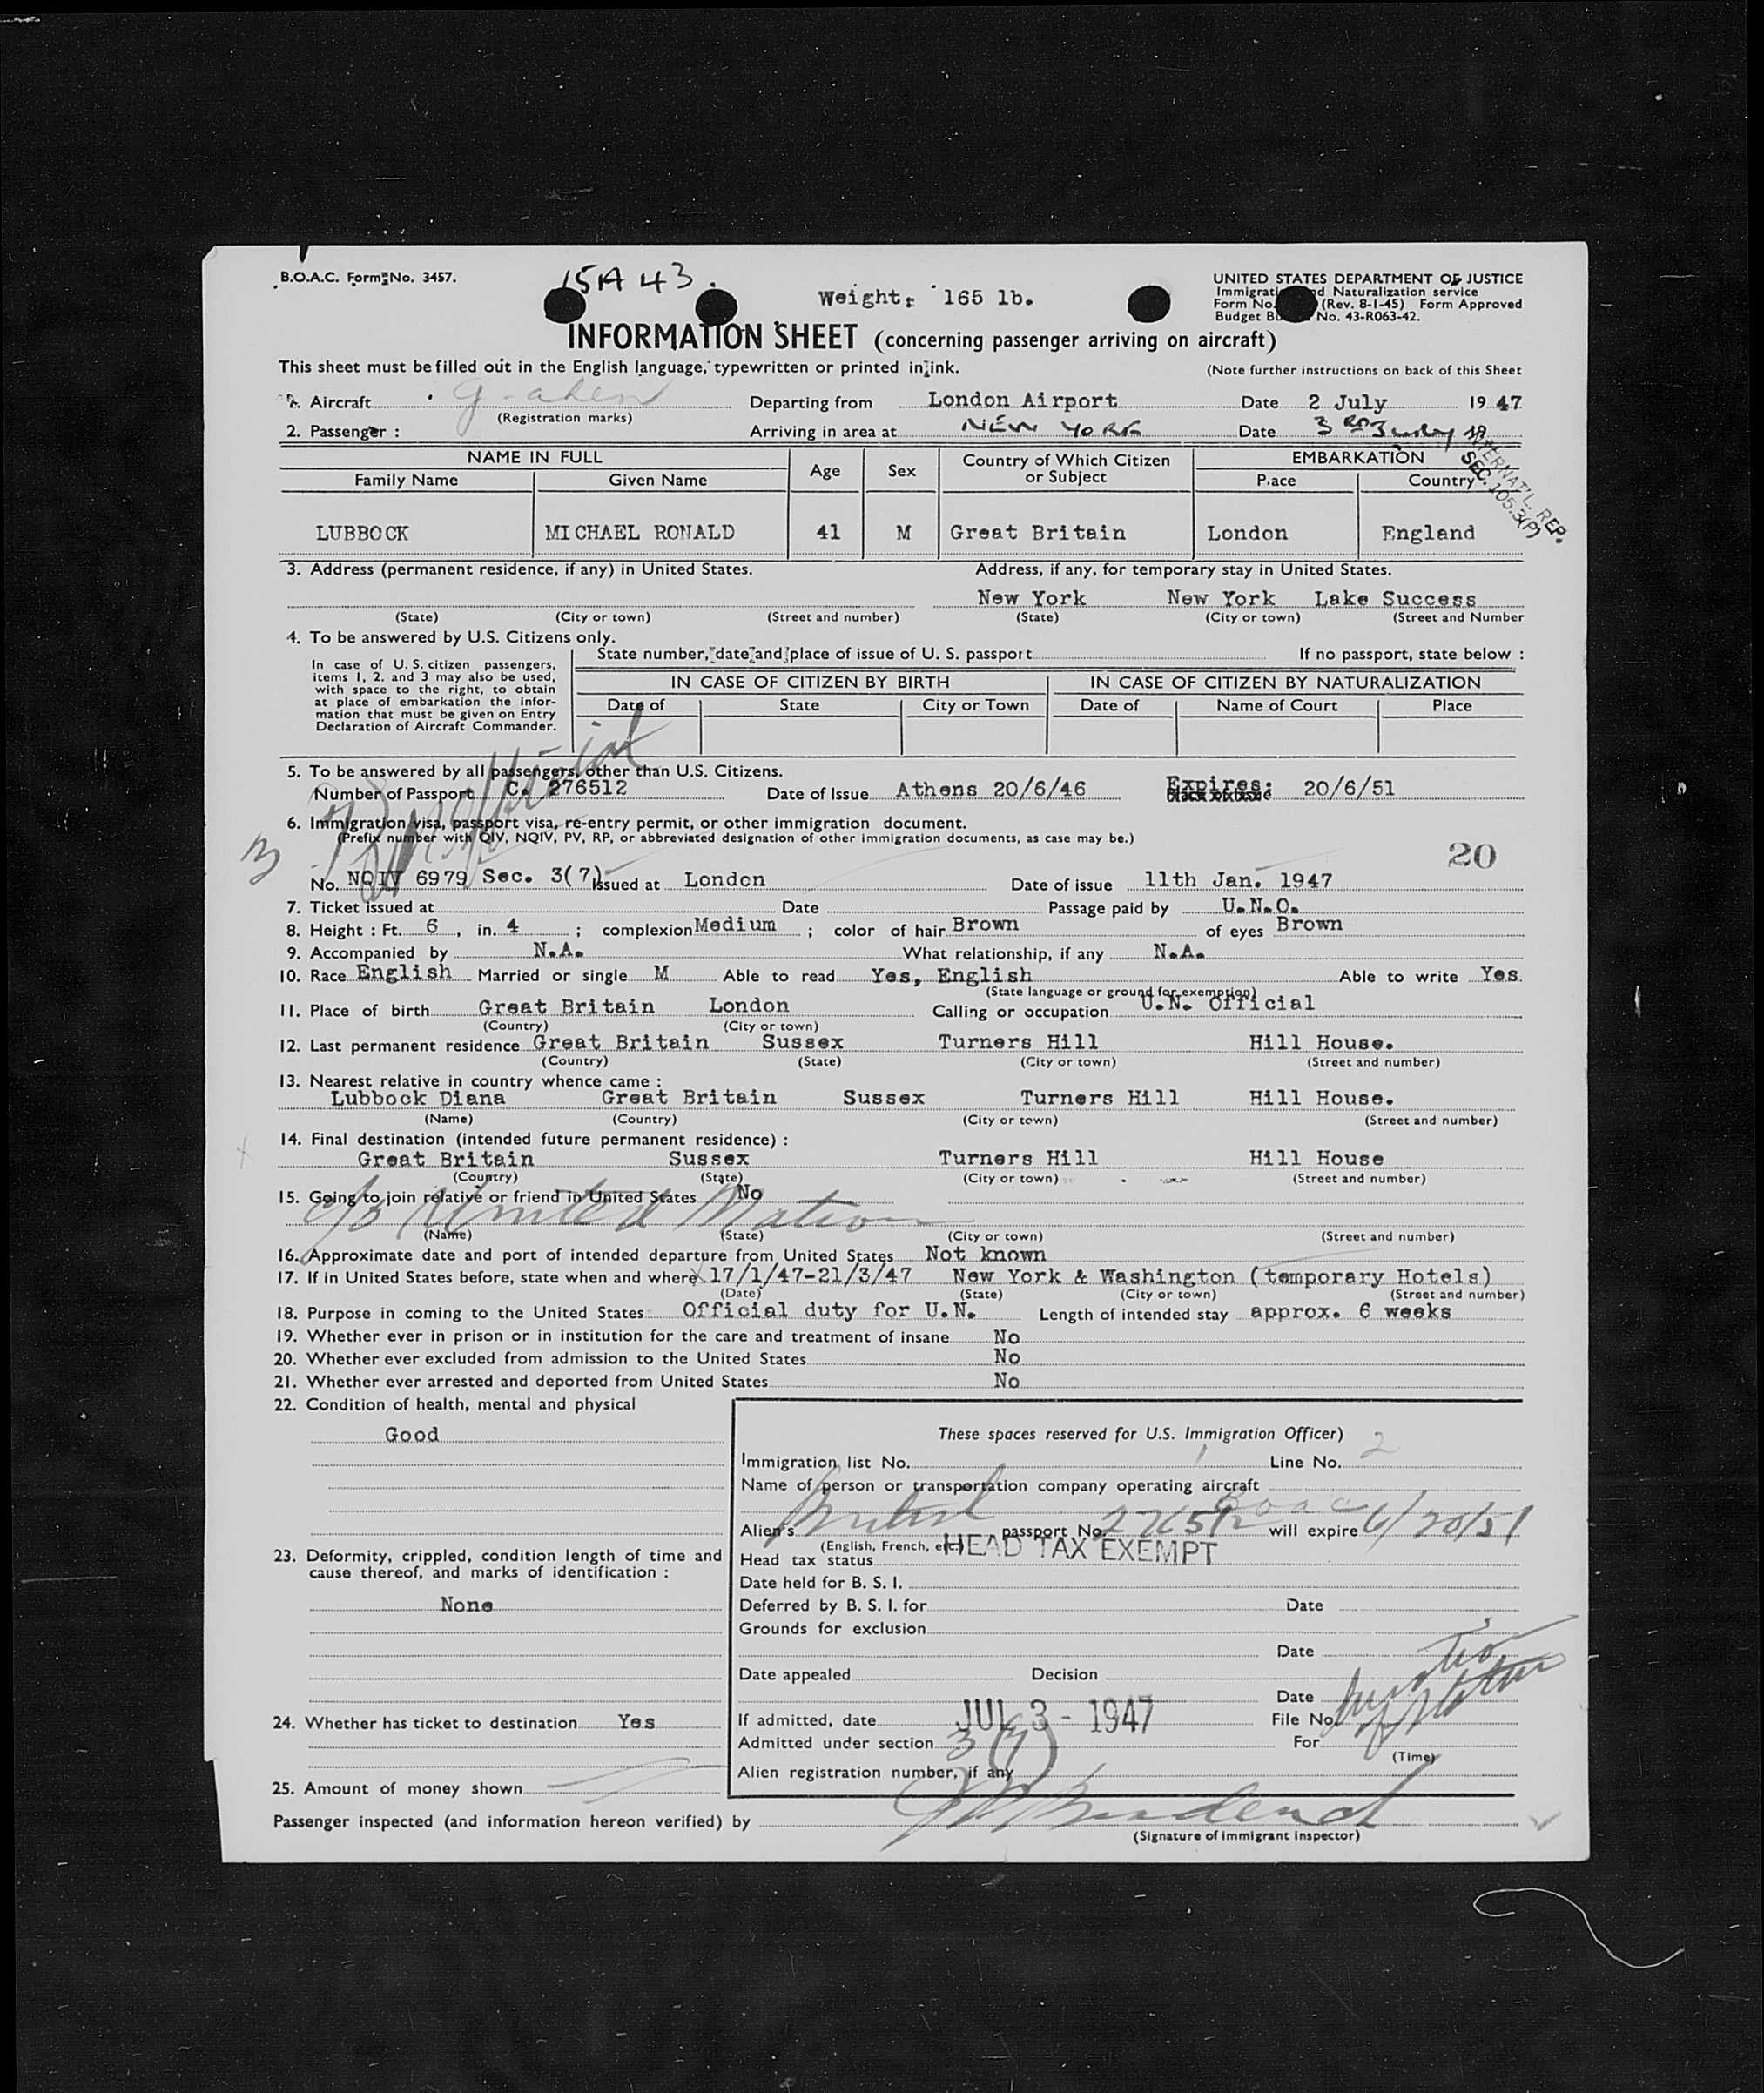 B.O.A.C. Form No. 3457.
15A 43.
Weight: 165 lb.
UNITED STATES DEPARTMENT OF JUSTICE
Immigrati d Naturalization service
Form No. (Rev. 8-1-45) Form Approved
Budget B No. 43-R063-42.
INFORMATION SHEET (concerning passenger arriving on aircraft)
This sheet must be filled out in the English language, typewritten or printed in ink.
(Note further instructions on back of this Sheet
1. Aircraft Departing from London Airport Date 2 July 1947
(Registration marks)
2. Passenger : Arriving in area at NEW YORK Date 3RD 19
INTERNAT'L. REP.
SEC. 105.3(P)
NAME IN FULL Age Sex Country of Which Citizen or Subject EMBARKATION
Family Name Given Name P.ace Country
LUBBOCK MICHAEL RONALD 41 M Great Britain London England
3. Address (permanent residence, if any) in United States. Address, if any, for temporary stay in United States.
New York New York Lake Success
(State) (City or town) (Street and number) (State) (City or town) (Street and Number
4. To be answered by U.S. Citizens only.
State number, date and place of issue of U. S. passport If no passport, state below :
In case of U. S. citizen passengers,
items 1, 2. and 3 may also be used,
with space to the right, to obtain
at place of embarkation the infor-
mation that must be given on Entry
Declaration of Aircraft Commander.
IN CASE OF CITIZEN BY BIRTH IN CASE OF CITIZEN BY NATURALIZATION
Date of State City or Town Date of Name of Court Place
5. To be answered by all passengers, other than U.S. Citizens.
Number of Passport C. 276512 Date of Issue Athens 20/6/46 Expires: 20/6/51
6. Immigration visa, passport visa, re-entry permit, or other immigration document.
(Prefix number with QIV, NQIV, PV, RP, or abbreviated designation of other immigration documents, as case may be.)
3
20
No. NQIV 6979 Sec. 3(7) Issued at London Date of issue 11th Jan. 1947
7. Ticket issued at Date Passage paid by U.N.O.
8. Height : Ft. 6 , in. 4 ; complexion Medium ; color of hair Brown of eyes Brown
9. Accompanied by N.A. What relationship, if any N.A.
10. Race English Married or single M Able to read Yes, English Able to write Yes
(State language or ground for exemption)
11. Place of birth Great Britain London Calling or occupation U.N. Official
(Country) (City or town)
12. Last permanent residence Great Britain Sussex Turners Hill Hill House.
(Country) (State) (City or town) (Street and number)
13. Nearest relative in country whence came :
Lubbock Diana Great Britain Sussex Turners Hill Hill House.
(Name) (Country) (City or town) (Street and number)
14. Final destination (intended future permanent residence) :
Great Britain Sussex Turners Hill Hill House
(Country) (State) (City or town) (Street and number)
15. Going to join relative or friend in United States No
c/o United Nation
(Name) (State) (City or town) (Street and number)
16. Approximate date and port of intended departure from United States Not known
17. If in United States before, state when and where 17/1/47-21/3/47 New York & Washington (temporary Hotels)
(Date) (State) (City or town) (Street and number)
18. Purpose in coming to the United States Official duty for U.N. Length of intended stay approx. 6 weeks
19. Whether ever in prison or in institution for the care and treatment of insane No
20. Whether ever excluded from admission to the United States No
21. Whether ever arrested and deported from United States No
22. Condition of health, mental and physical
Good
23. Deformity, crippled, condition length of time and
cause thereof, and marks of identification :
None
24. Whether has ticket to destination Yes
25. Amount of money shown
These spaces reserved for U.S. Immigration Officer)
Immigration list No. 1 Line No. 2
Name of person or transportation company operating aircraft
BOAC
Alien's British passport No. 276512 will expire 6/20/51
(English, French, etc.)
Head tax status HEAD TAX EXEMPT
Date held for B. S. I.
Deferred by B. S. I. for Date
Grounds for exclusion
Date
Date appealed Decision
Date
If admitted, date JUL 3 - 1947 File No.
Admitted under section 3(7) For
(Time)
Alien registration number, if any
Passenger inspected (and information hereon verified) by
(Signature of Immigrant Inspector)